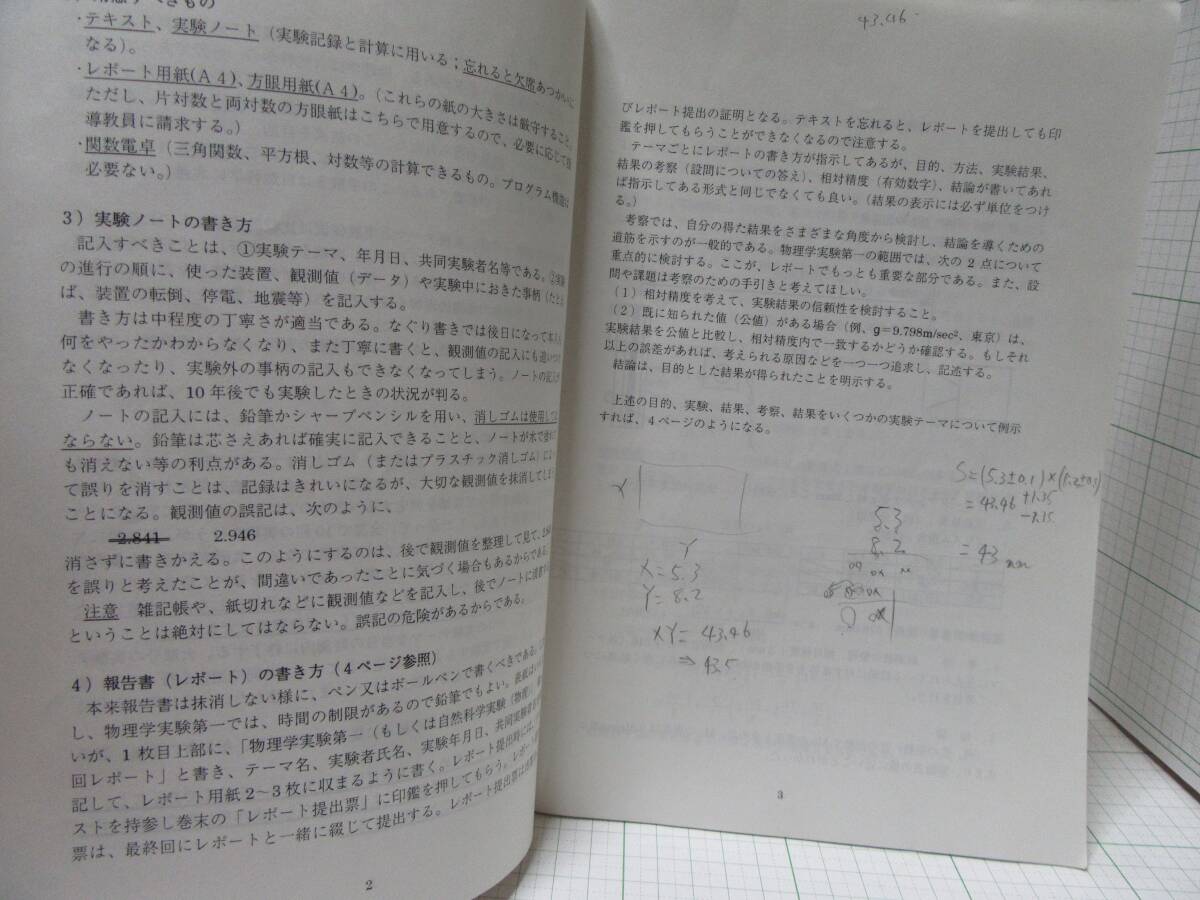 用意すべきもの
・テキスト、実験ノート（実験記録と計算に用いる；忘れると欠席あつかいに
なる）。
・レポート用紙(Ａ４)、方眼用紙(Ａ４)。（これらの紙の大きさは厳守すること。
ただし、片対数と両対数の方眼紙はこちらで用意するので、必要に応じて指
導教員に請求する。）
・関数電卓（三角関数、平方根、対数等の計算できるもの。プログラム機能は
必要ない。）
3）実験ノートの書き方
記入すべきことは、①実験テーマ、年月日、共同実験者名等である。②実験
の進行の順に、使った装置、観測値（データ）や実験中におきた事柄（たとえ
ば、装置の転倒、停電、地震等）を記入する。
書き方は中程度の丁寧さが適当である。なぐり書きでは後日になって本人も
何をやったかわからなくなり、また丁寧に書くと、観測値の記入にも追いつけ
なくなったり、実験外の事柄の記入もできなくなってしまう。ノートの記入が
正確であれば、10 年後でも実験したときの状況が判る。
ノートの記入には、鉛筆かシャープペンシルを用い、消しゴムは使用しては
ならない。鉛筆は芯さえあれば確実に記入できることと、ノートが水で濡れて
も消えない等の利点がある。消しゴム（またはプラスチック消しゴム）によっ
て誤りを消すことは、記録はきれいになるが、大切な観測値を抹消してしまう
ことになる。観測値の誤記は、次のように、
2.841　2.946
消さずに書きかえる。このようにするのは、後で観測値を整理して見て、2.841
を誤りと考えたことが、間違いであったことに気づく場合もあるからである。
注意　雑記帳や、紙切れなどに観測値などを記入し、後でノートに清書する
ということは絶対にしてはならない。誤記の危険があるからである。
4）報告書（レポート）の書き方（4 ページ参照）
本来報告書は抹消しない様に、ペン又はボールペンで書くべきである。
し、物理学実験第一では、時間の制限があるので鉛筆でもよい。表紙は
いが、1 枚目上部に、「物理学実験第一（もしくは自然科学実験（物理））
回レポート」と書き、テーマ名、実験者氏名、実験年月日、共同実験者
記して、レポート用紙 2～3 枚に収まるように書く。レポート提出時には
ストを持参し巻末の「レポート提出票」に印鑑を押してもらう。レポート
票は、最終回にレポートと一緒に綴じて提出する。レポート提出票は
2
43.46
びレポート提出の証明となる。テキストを忘れると、レポートを提出しても印
鑑を押してもらうことができなくなるので注意する。
テーマごとにレポートの書き方が指示してあるが、目的、方法、実験結果、
結果の考察（設問についての答え）、相対精度（有効数字）、結論が書いてあれ
ば指示してある形式と同じでなくても良い。（結果の表示には必ず単位をつけ
る。）
考察では、自分の得た結果をさまざまな角度から検討し、結論を導くための
道筋を示すのが一般的である。物理学実験第一の範囲では、次の 2 点について
重点的に検討する。ここが、レポートでもっとも重要な部分である。また、設
問や課題は考察のための手引きと考えてほしい。
（1）相対精度を考えて、実験結果の信頼性を検討すること。
（2）既に知られた値（公値）がある場合（例、g＝9.798m/sec²、東京）は、
実験結果を公値と比較し、相対精度内で一致するかどうか確認する。もしそれ
以上の誤差があれば、考えられる原因などを一つ一つ追求し、記述する。
結論は、目的とした結果が得られたことを明示する。
上述の目的、実験、結果、考察、結果をいくつかの実験テーマについて例示
すれば、4 ページのようになる。
X
Y
X = 5.3
Y = 8.2
XY = 43.46
⇒ 43.5
5.3
8.2
S = (5.3±0.1)×(8.2±0.1)
= 43.46 +1.35
-1.35
= 43
3